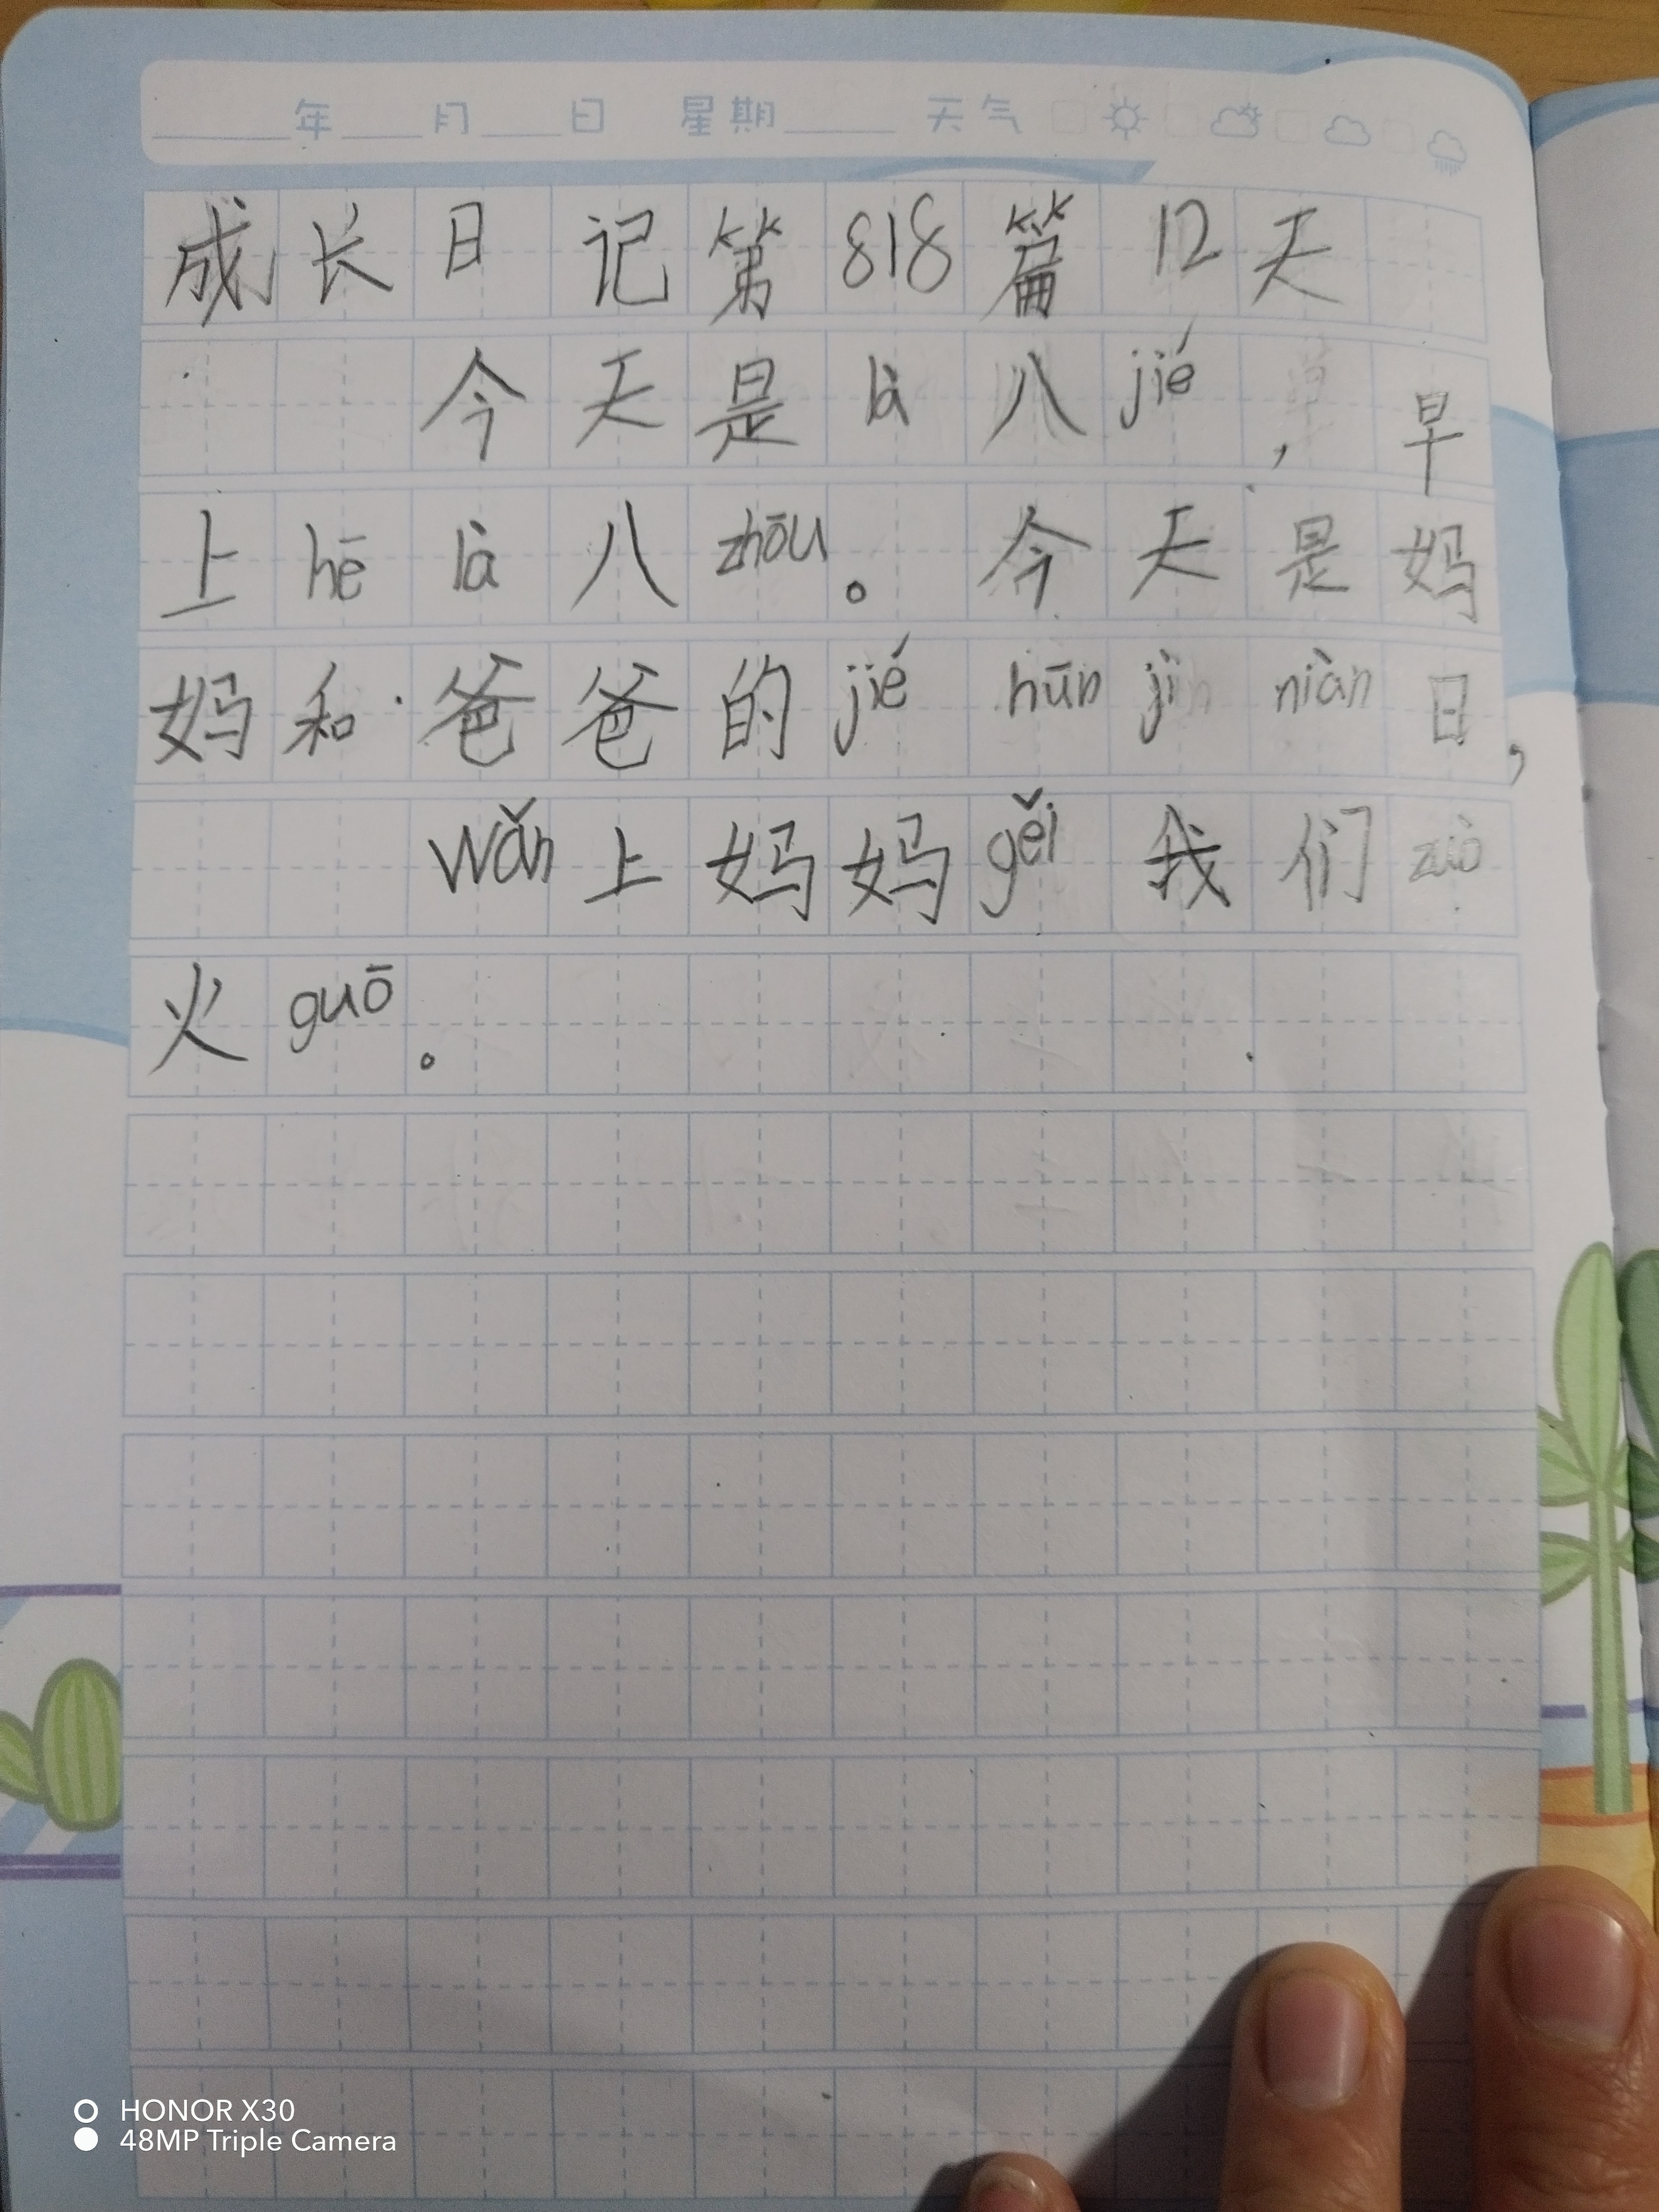 年 月 日 星期 天气
成长日记第818篇12天
今天是là八jié，早
上hē là八zhōu。今天是妈
妈和爸爸的jié hūn jì niàn日，
wǎn上妈妈gěi我们zuò
火guō。
HONOR X30
48MP Triple Camera